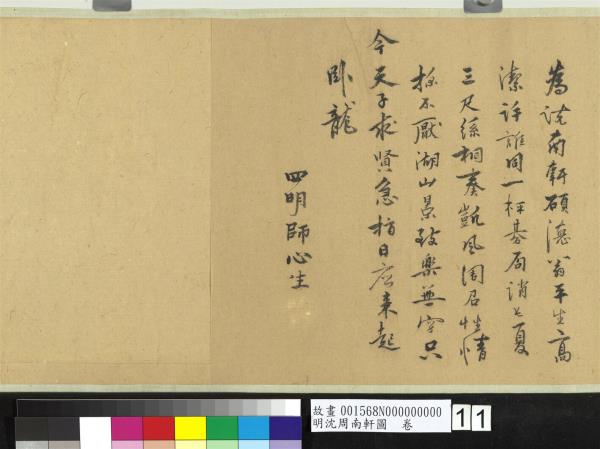 為說南軒碩德翁平生高
潔許誰同一枰碁局消長夏
三尺絲桐奏凱風閒居性情
不厭湖山景致樂無穷只
今天子求賢急指日應来起
卧龍
四明師心生
故畫 001568N000000000
明沈周南軒圖 卷
11